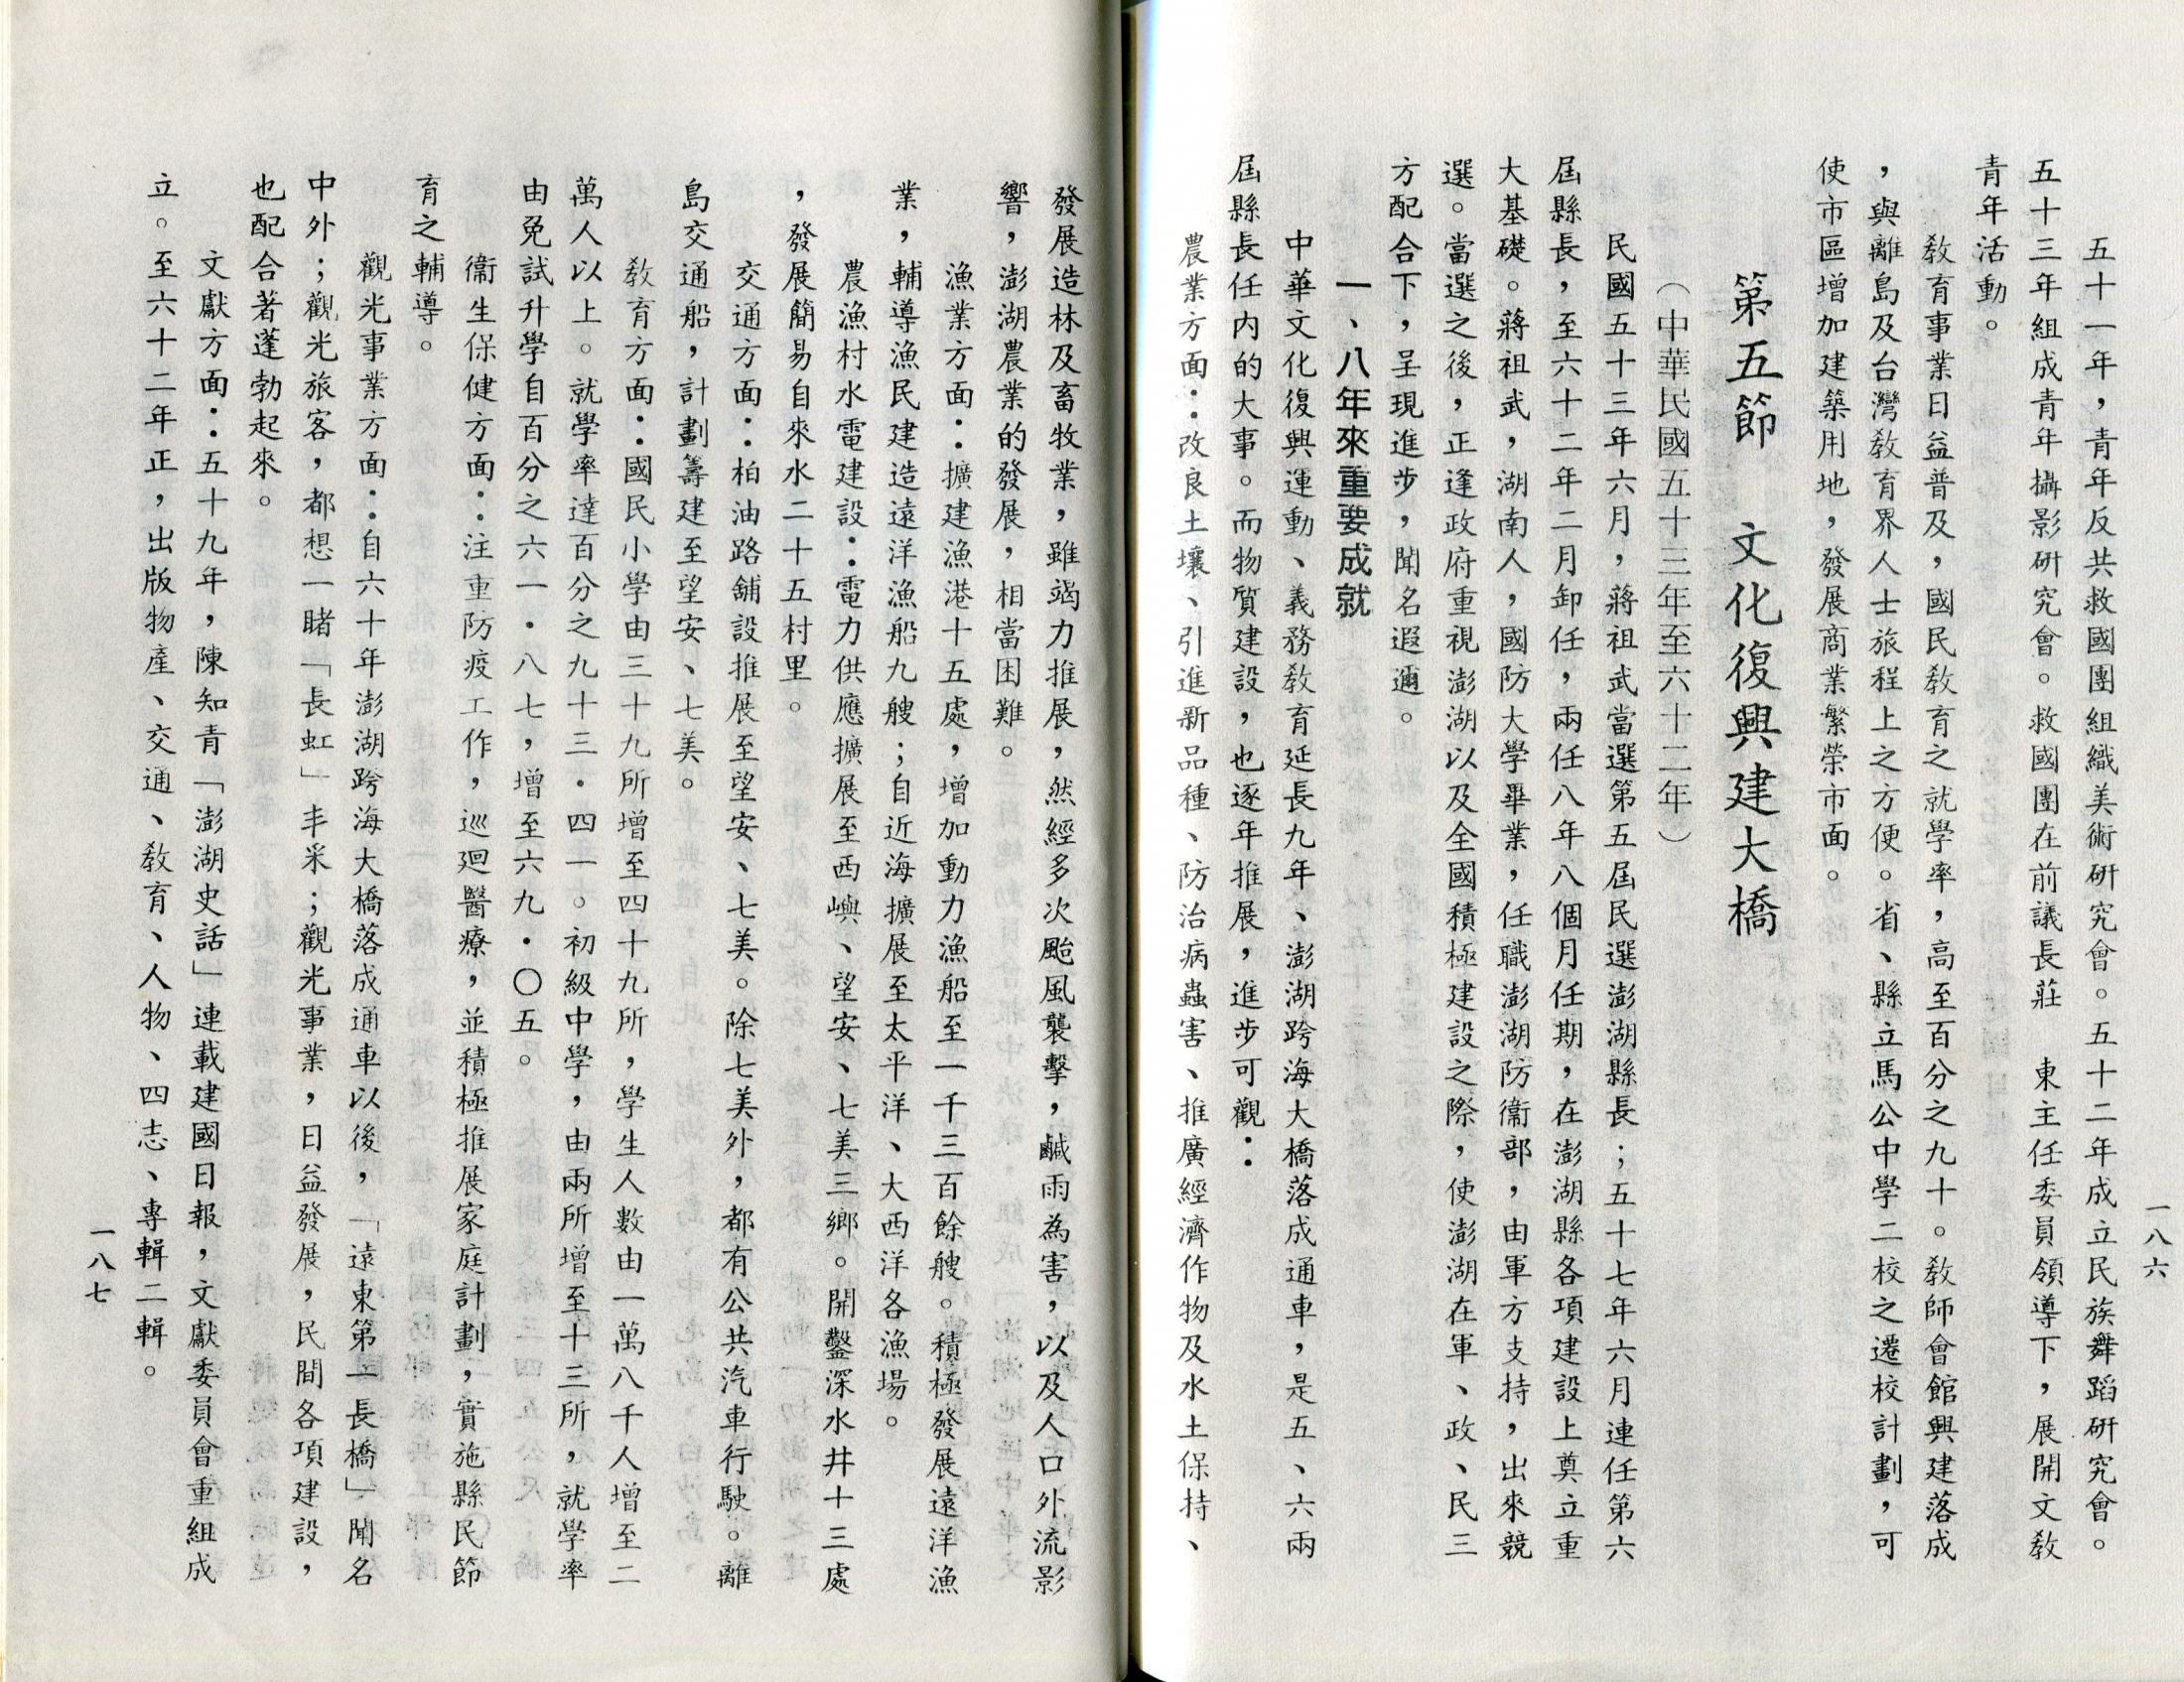 一八六
五十一年，青年反共救國團組織美術研究會。五十二年成立民族舞蹈研究會。
五十三年組成青年攝影研究會。救國團在前議長莊　東主任委員領導下，展開文教
青年活動。
教育事業日益普及，國民教育之就學率，高至百分之九十。教師會館興建落成
，與離島及台灣教育界人士旅程上之方便。省、縣立馬公中學二校之遷校計劃，可
使市區增加建築用地，發展商業繁榮市面。
第五節　文化復興建大橋
（中華民國五十三年至六十二年）
民國五十三年六月，蔣祖武當選第五屆民選澎湖縣長；五十七年六月連任第六
屆縣長，至六十二年二月卸任，兩任八年八個月任期，在澎湖縣各項建設上奠立重
大基礎。蔣祖武，湖南人，國防大學畢業，任職澎湖防衞部，由軍方支持，出來競
選。當選之後，正逢政府重視澎湖以及全國積極建設之際，使澎湖在軍、政、民三
方配合下，呈現進步，聞名遐邇。
一、八年來重要成就
中華文化復興運動、義務教育延長九年、澎湖跨海大橋落成通車，是五、六兩
屆縣長任內的大事。而物質建設，也逐年推展，進步可觀：
農業方面：改良土壤、引進新品種、防治病蟲害、推廣經濟作物及水土保持、
發展造林及畜牧業，雖竭力推展，然經多次颱風襲擊，鹹雨為害，以及人口外流影
響，澎湖農業的發展，相當困難。
漁業方面：擴建漁港十五處，增加動力漁船至一千三百餘艘。積極發展遠洋漁
業，輔導漁民建造遠洋漁船九艘；自近海擴展至太平洋、大西洋各漁場。
農漁村水電建設：電力供應擴展至西嶼、望安、七美三鄉。開鑿深水井十三處
，發展簡易自來水二十五村里。
交通方面：柏油路舖設推展至望安、七美。除七美外，都有公共汽車行駛。離
島交通船，計劃籌建至望安、七美。
教育方面：國民小學由三十九所增至四十九所，學生人數由一萬八千人增至二
萬人以上。就學率達百分之九十三・四一。初級中學，由兩所增至十三所，就學率
由免試升學自百分之六一・八七，增至六九・〇五。
衞生保健方面：注重防疫工作，巡迴醫療，並積極推展家庭計劃，實施縣民節
育之輔導。
觀光事業方面：自六十年澎湖跨海大橋落成通車以後，「遠東第一長橋」聞名
中外；觀光旅客，都想一睹「長虹」丰采；觀光事業，日益發展，民間各項建設，
也配合著蓬勃起來。
文獻方面：五十九年，陳知青「澎湖史話」連載建國日報，文獻委員會重組成
立。至六十二年正，出版物產、交通、教育、人物、四志、專輯二輯。
一八七